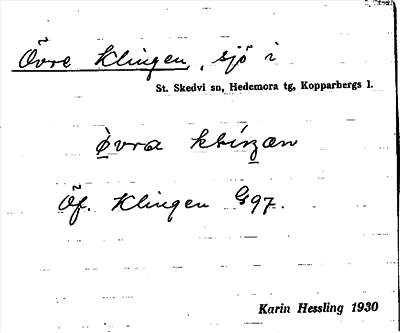 Övre Klingen, sjö i
St. Skedvi sn, Hedemora tg, Kopparbergs l.
Övra
Öf. Klingen G97.
Karin Hessling 1930